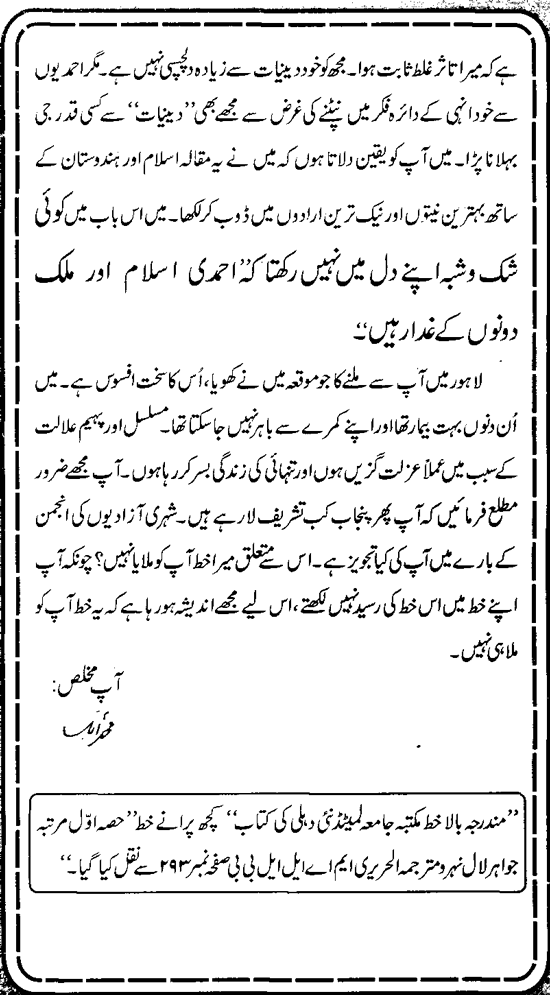 ہے کہ میرا تاثر غلط ثابت ہوا۔ مجھ کو خود دینیات سے زیادہ دلچسپی نہیں ہے۔ مگر احمدیوں
سے خود انہی کے دائرہ فکر میں نپٹنے کی غرض سے مجھے بھی ”دینیات“ سے کسی قدر جی
بہلانا پڑا۔ میں آپ کو یقین دلاتا ہوں کہ میں نے یہ مقالہ اسلام اور ہندوستان کے
ساتھ بہترین نیتوں اور نیک ترین ارادوں میں ڈوب کر لکھا۔ میں اس باب میں کوئی
شک و شبہ اپنے دل میں نہیں رکھتا کہ ”احمدی اسلام اور ملک
دونوں کے غدار ہیں“۔
لاہور میں آپ سے ملنے کا جو موقعہ میں نے کھویا، اُس کا سخت افسوس ہے۔ میں
اُن دنوں بہت بیمار تھا اور اپنے کمرے سے باہر نہیں جا سکتا تھا۔ مسلسل اور پیہم علالت
کے سبب میں عملاً عزلت گزیں ہوں اور تنہائی کی زندگی بسر کر رہا ہوں۔ آپ مجھے ضرور
مطلع فرمائیں کہ آپ پھر پنجاب کب تشریف لا رہے ہیں۔ شہری آزادیوں کی انجمن
کے بارے میں آپ کی کیا تجویز ہے۔ اس سے متعلق میرا خط آپ کو ملا یا نہیں؟ چونکہ آپ
اپنے خط میں اس خط کی رسید نہیں لکھتے، اس لیے مجھے اندیشہ ہو رہا ہے کہ یہ خط آپ کو
ملا ہی نہیں۔
آپ مخلص:
محمد اقبال
”مندرجہ بالا خط مکتبہ جامعہ لمیٹڈ نئی دہلی کی کتاب“ کچھ پرانے خط” حصہ اوّل مرتبہ
جواہر لال نہرو مترجمہ الحریری ایم اے ایل ایل بی بی صفحہ نمبر ۲۹۳ سے نقل کیا گیا۔“